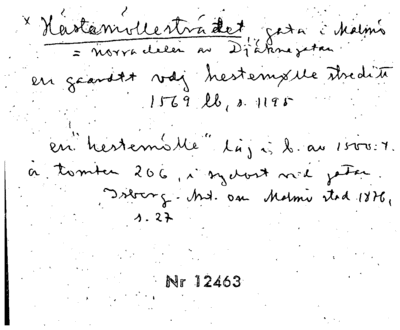 x Hästemöllestrådet gata i Malmö
= norra delen av Djäknegatan
en gaardtt vdj hestemølle streditt
1569 lb, s. 119
en "hestemölle" låg i b. av 1500-t.
å tomten 206, i sydost vid gatan.
Isberg. om Malmö stad 1876,
s. 27
Nr 12463